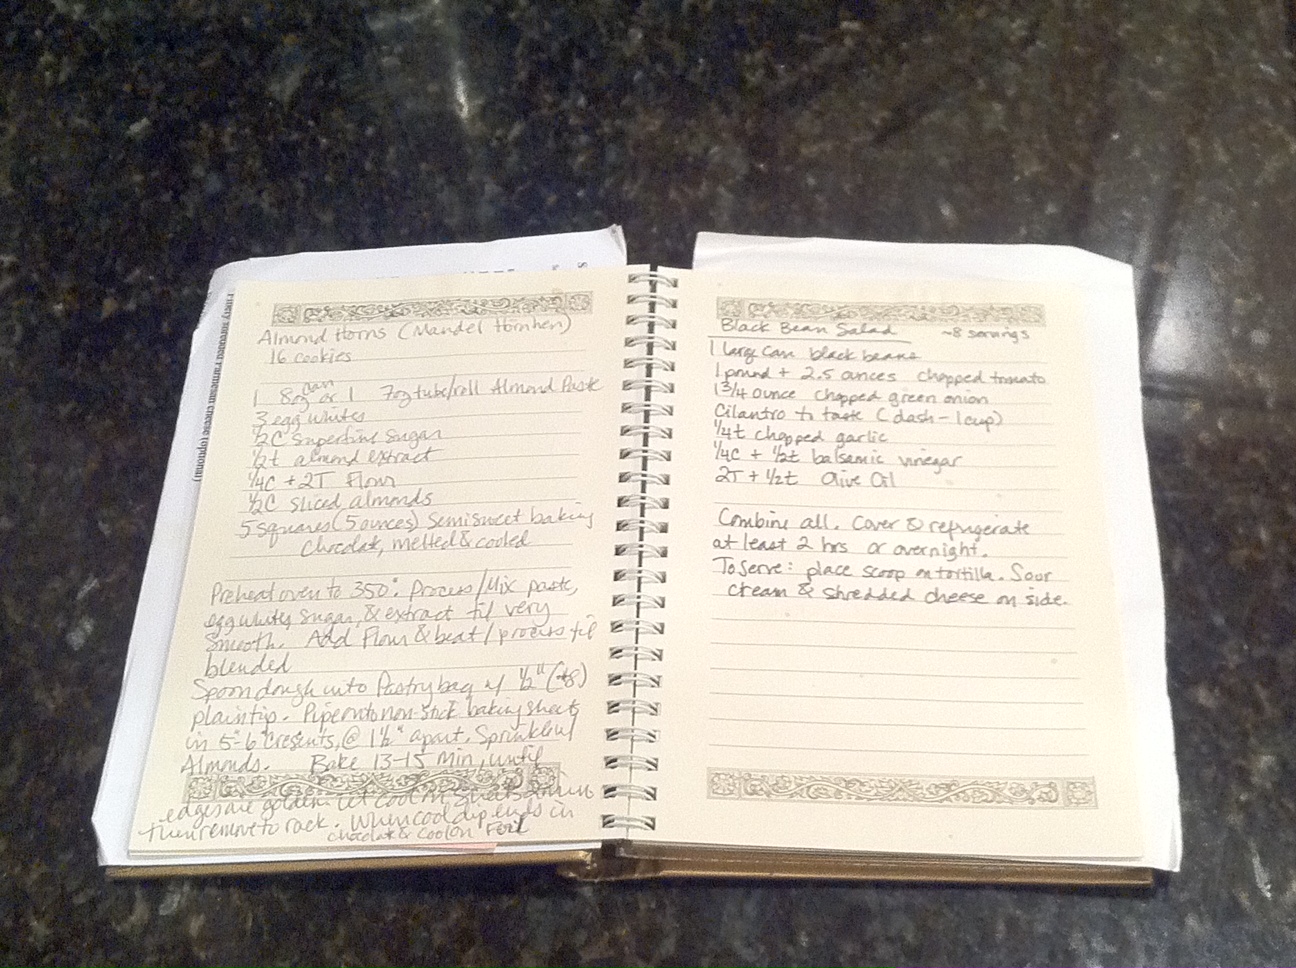 Finely shredded Parmesan cheese (optional)
Almond Horns (Mandel Hörnhen)
16 cookies
can
1 8oz or 1 7oz tube/roll Almond Paste
3 egg whites
1/2C Superfine Sugar
1/2t almond extract
1/4C + 2T Flour
1/2C sliced almonds
5 squares (5 ounces) Semisweet baking
chocolate, melted & cooled
Preheat oven to 350°. Process/Mix paste,
egg whites sugar, & extract til very
smooth. Add Flour & beat/process til
blended
Spoon dough into Pastry bag w/ 1/2" (#8)
plain tip. Pipe onto non-stick baking sheets
in 5"-6" Cresents, @ 1 1/2" apart. Sprinkle w/
Almonds. Bake 13-15 Min, until
edges are golden. Let cool on sheets
then remove to rack. When cool dip ends in
chocolate & cool on Foil
Black Bean Salad ~8 servings
1 large can black beans
1 pound + 2.5 ounces chopped tomato
1 3/4 ounce chopped green onion
Cilantro to taste (dash-1cup)
1/4t chopped garlic
1/4C + 1/2t balsamic vinegar
2T + 1/2t Olive Oil
Combine all. Cover & refrigerate
at least 2 hrs or overnight.
To Serve: place scoop on tortilla. Sour
cream & shredded cheese on side.